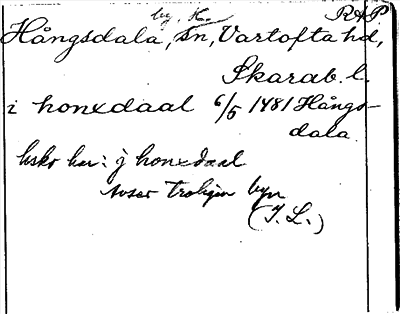 by, K. RAP
Hångsdala, sn, Vartofta hd,
Skarab. l.
i honexdaal 6/5 1481 Hångs-
dala.
hskr har: j honexdaal
avser troligen byn
(I. L.)